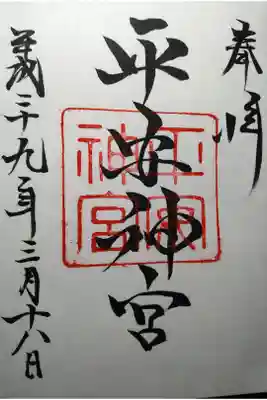 奉拝
平安神宮
平安神宮
平成二十九年三月十八日